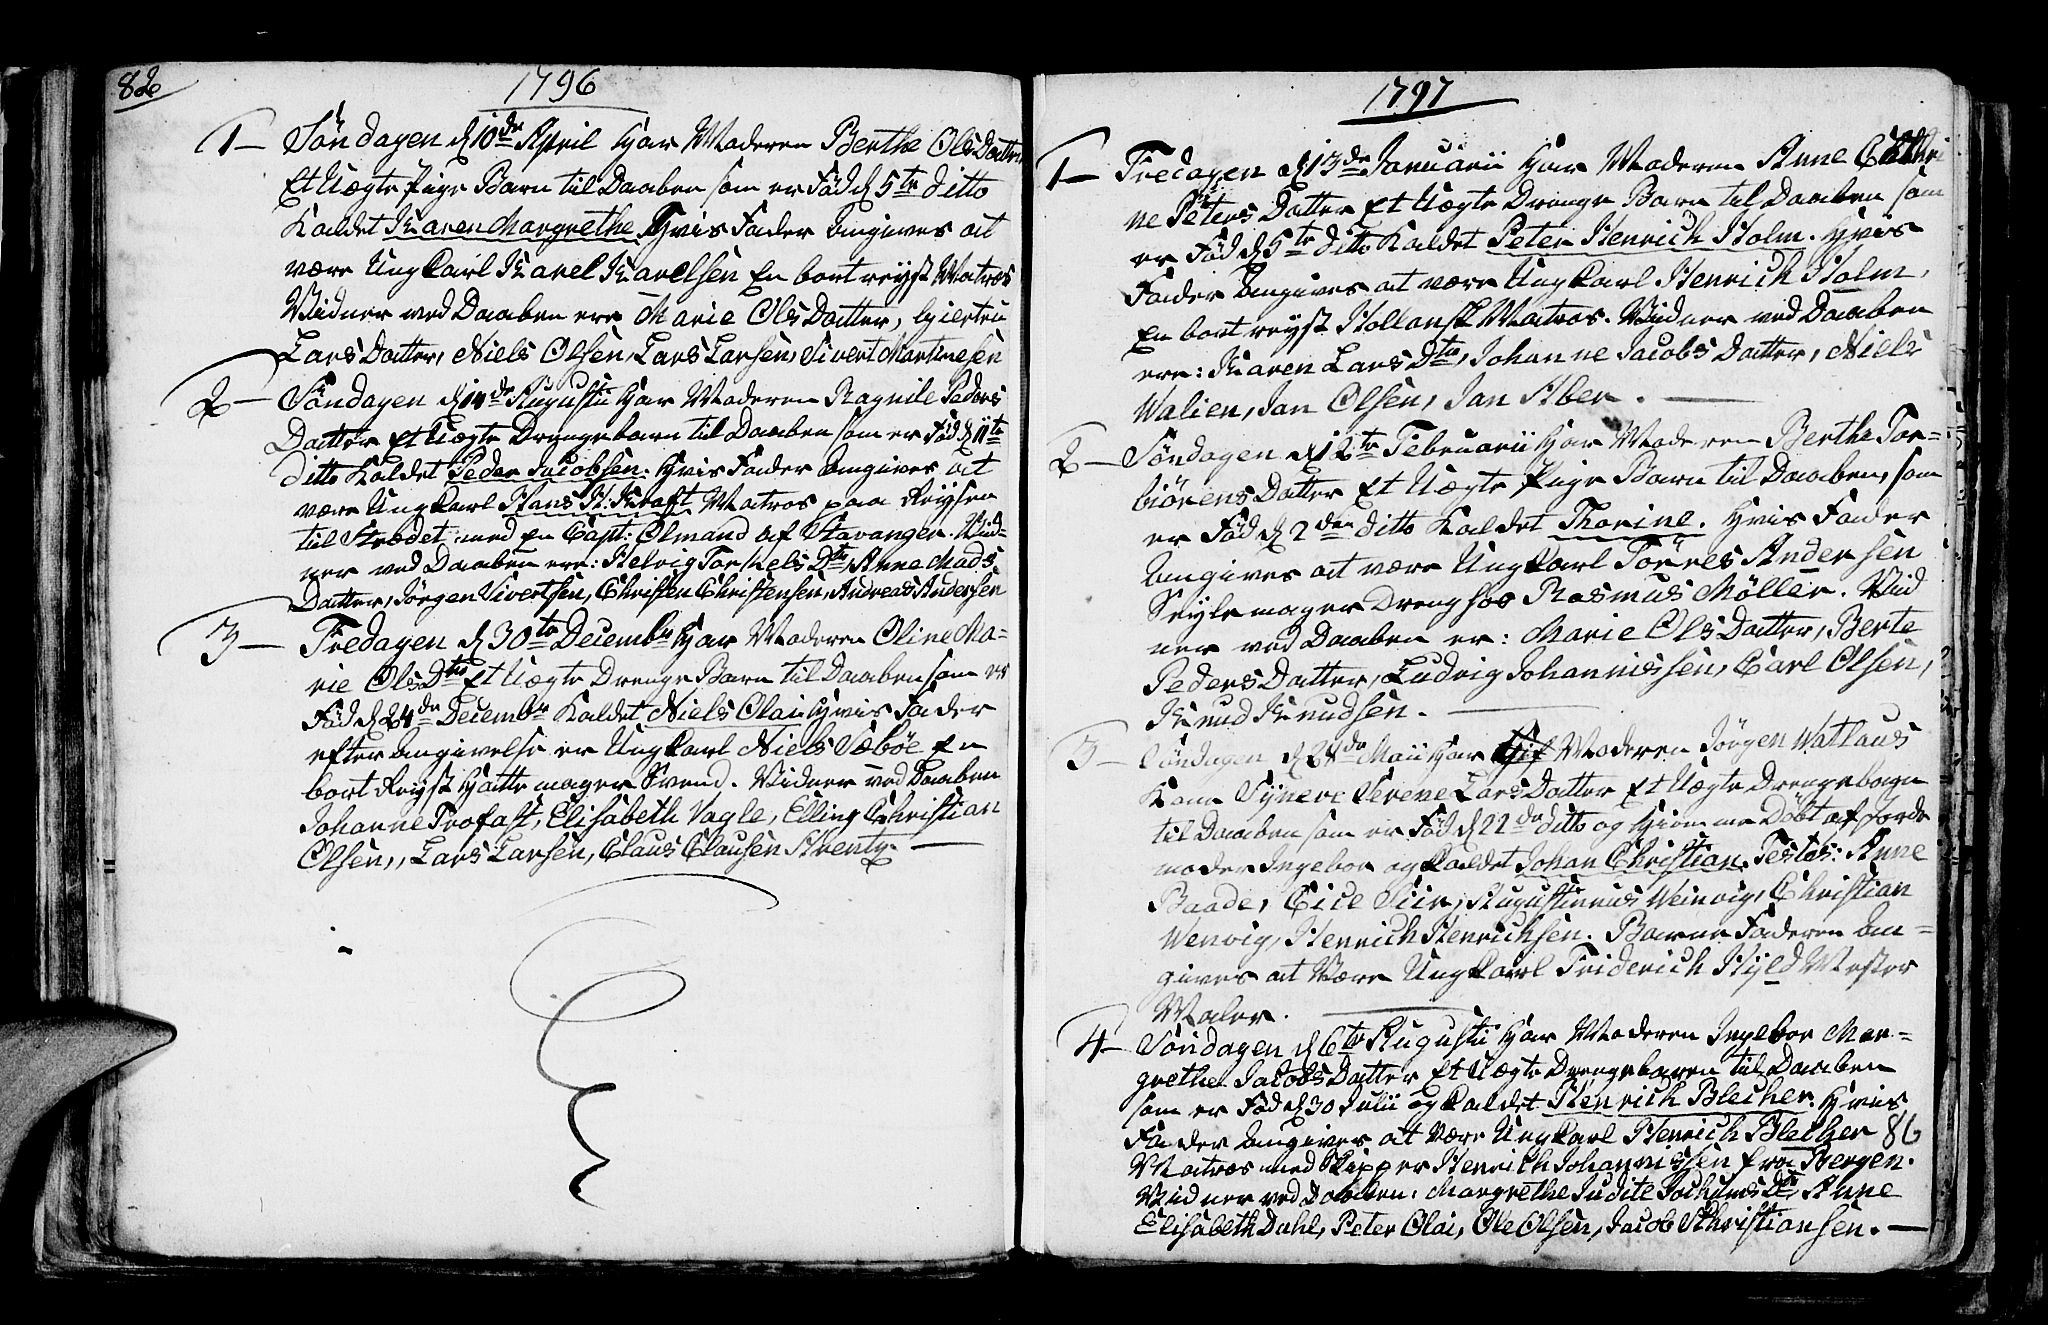 82
1796
1 — Söndagen d 10de April har Moderen Berthe Ols Datter
Et Uægte Pige Barn til Daaben som er Fød d 5te ditto
Kaldet Karen Margrethe Hvis Fader Angives at
være Ungkarl Karel Karelsen En bortreyst Matros
Vidner ved Daaben ere Marie Ols Datter, Giertru
Lars Datter, Niels Olsen, Lars Larsen, Sivert Martinesen
2 — Söndagen d 14de Augusti har Moderen Ragnile Peders
Datter Et Uægte Drengebarn til Daaben som er Fød d 11te
ditto Kaldet Peder Jacobsen. Hvis Fader Angives at
være Ungkarl Hans H. Kraft Matros paa Reysen
til Strædet med En Capt: Olmand af Stavanger. Vid-
ner ved Daaben ere: Helvig Torkels Dtr, Anne Mads
Datter, Jörgen Sivertsen, Christen Christensen, Andreas Andersen
3 — Fredagen d 30te Decembr har Moderen Oline Ma-
rie Ols Dtr Et Uægte Drenge Barn til Daaben som er
Fød d 24de Decembr Kaldet Niels Olai Hvis Fader
efter Angivelse er Ungkarl Niels Sæböe En
bort Reyst Hattemager Svend. Vidner ved Daaben
Johanne Trofast, Elisabeth Vagle, Elling Christian
Olsen, Lars Larsen, Claus Clausen Arenty. —
1797
1 — Fredagen d 13de Januarii har Moderen Anne Cathri
ne Peters Datter Et Uægte Drenge Barn til Daaben som
er Fød d 5te ditto Kaldet Peter Henrich Holm. Hvis
Fader Angives at være Ungkarl Henrich Holm,
En bortreyst Hollansk Matros. Vidner ved Daaben
ere: Karen Lars Dtr, Johanne Jacobs Datter, Niels
Walien, Jan Olsen, Jan Aben. —
2 — Söndagen d 12te Februarii har Moderen Berthe Tor-
biörens Datter Et Uægte Pige Barn til Daaben, som
er Fød d 2den ditto Kaldet Thorine. Hvis Fader
Angives at være Ungkarl Törres Andersen
Seylemager Dreng hos Rasmus Möller. Vid
ner ved Daaben er: Marie Ols Datter, Berte
Peders Datter, Ludvig Johannessen, Carl Olsen,
Knud Knudsen. —
3 — Söndagen d 28de Maii har Moderen Jörgen Watlaus
Kone Syneve Serene Lars Datter Et Uægte Drengebarn
til Daaben som er Fød d 22de ditto og Hiemme Döbt af Jorde
moder Ingebor og kaldet Johan Christian. Testes: Anne
Baade, Cicel Siir, Augustinus Weinvig, Christian
Wenvig, Henrich Henrichsen. Barne Faderen An-
gives at være Ungkarl Friderich Hyld Mester
Maler. —
4 — Söndagen d 6te Augusti har Moderen Ingebor Mar-
grethe Jacobs Datter Et Uægte Drengebaren til Daaben
som er Fød d 30 Julii og kaldet Henrich Blecher. Hvis
Fader Angives at være Ungkarl Henrich Blecher 86
Matros med Skipper Henrich Johannessen fra Bergen.
Vidner ved Daaben: Margrethe Judite Jochums Dtr, Anne
Elisabeth Dahl, Peter Olai, Ole Olsen, Jacob Christiansen. —